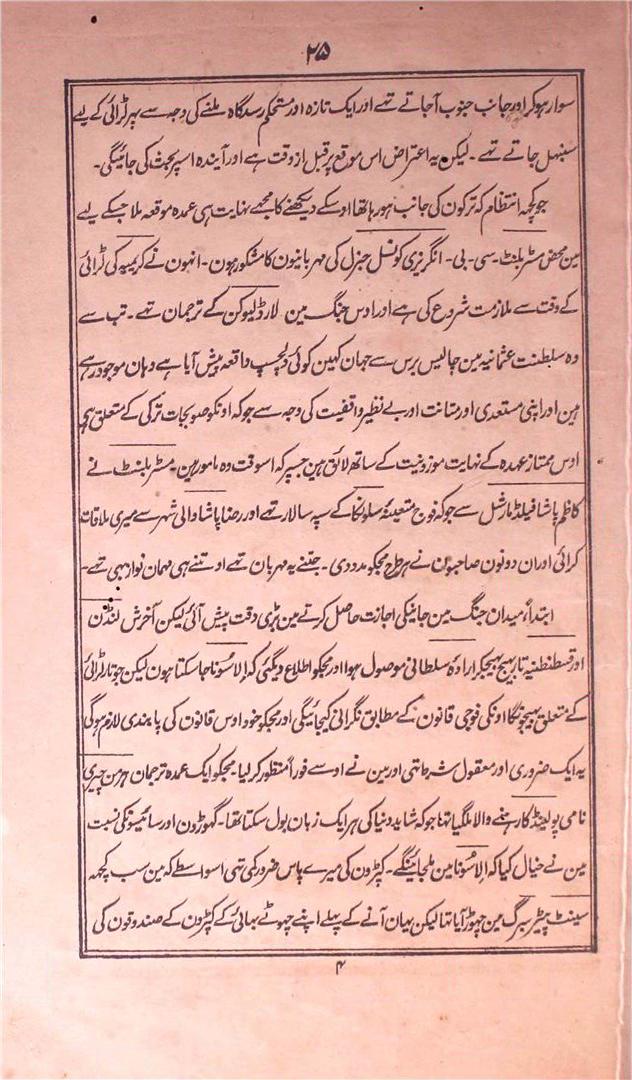 ۲۵
سوار ہو کر اور جانب جنوب آجاتے تھے اور ایک تازہ اور مستحکم رسدگاہ ملنے کی وجہ سے پہر لڑائی کے لیے
سنبھل جاتے تھے ۔ لیکن یہ اعتراض اس موقع پر قبل از وقت ہے اور آیندہ اسپر بحث کی جائیگی ۔
جو کچھ انتظام کہ ترکون کی جانب ہو رہا تھا اوسکے دیکھنے کا مجھے نہایت ہی عمدہ موقعہ ملا جسکے لیے
مین محض مسٹر بلنٹ ۔ سی ۔ بی ۔ انگریزی کونسل جنرل کی مہربانیون کا مشکور ہون ۔ انہون نے کریمیہ کی لڑائی
کے وقت سے ملازمت شروع کی ہے اور اوس جنگ مین لارڈ لیوکن کے ترجمان تھے ۔ تب سے
وہ سلطنت عثمانیہ مین چالیس برس سے جہان کہین کوئی دلچسپ واقعہ پیش آیا ہے وہان موجود رہے
ہین اور اپنی مستعدی اور متانت اور بے نظیر واقفیت کی وجہ سے جو کہ اونکو صوبجات ترکی کے متعلق ہے
اوس ممتاز عہدہ کے نہایت موزونیت کے ساتھ لائق ہین جسپر کہ اسوقت وہ مامور ہین ۔ مسٹر بلنٹ نے
کاظم پاشا فیلڈ مارشل سے جو کہ فوج متعینہ سلونکا کے سپہ سالار تھے اور رضا پاشا والی شہر سے میری ملاقات
کرائی اور ان دونون صاحبون نے ہر طرح مجکو مدد دی ۔ جتنے یہ مہربان تھے اوتنے ہی مہمان نواز بھی تھے ۔
ابتداءً میدان جنگ مین جانیکی اجازت حاصل کرنے مین بڑی دقت پیش آئی لیکن آخرش لنڈن
اور قسطنطنیہ تار بہیج بہیجکر ارادۂ سلطانی موصول ہوا اور مجکو اطلاع دیگئی کہ الاسونا جا سکتا ہون لیکن جو تار لڑائی
کے متعلق بہیجونگا اونکی فوجی قانون کے مطابق نگرانی کیجائیگی اور مجکو خود اوس قانون کی پابندی لازم ہوگی
یہ ایک ضروری اور معقول شرط تھی اور مین نے اوسے فوراً منظور کر لیا ۔ مجکو ایک عمدہ ترجمان
نامی پولینڈ کا رہنے والا ملگیا تھا جو کہ شاید دنیا کی ہر ایک زبان بول سکتا تھا ۔ گھوڑون اور سائیسونکی نسبت
مین نے خیال کیا کہ الاسونا مین ملجائینگے ۔ کپڑون کی میرے پاس ضرور کمی تھی اسواسطے کہ مین سب کچھ
سینٹ پیٹرسبرگ مین چھوڑ آیا تھا لیکن یہان آنے کے پہلے اپنے چھوٹے بھائی کے کپڑون کے صندوقون کی
۴